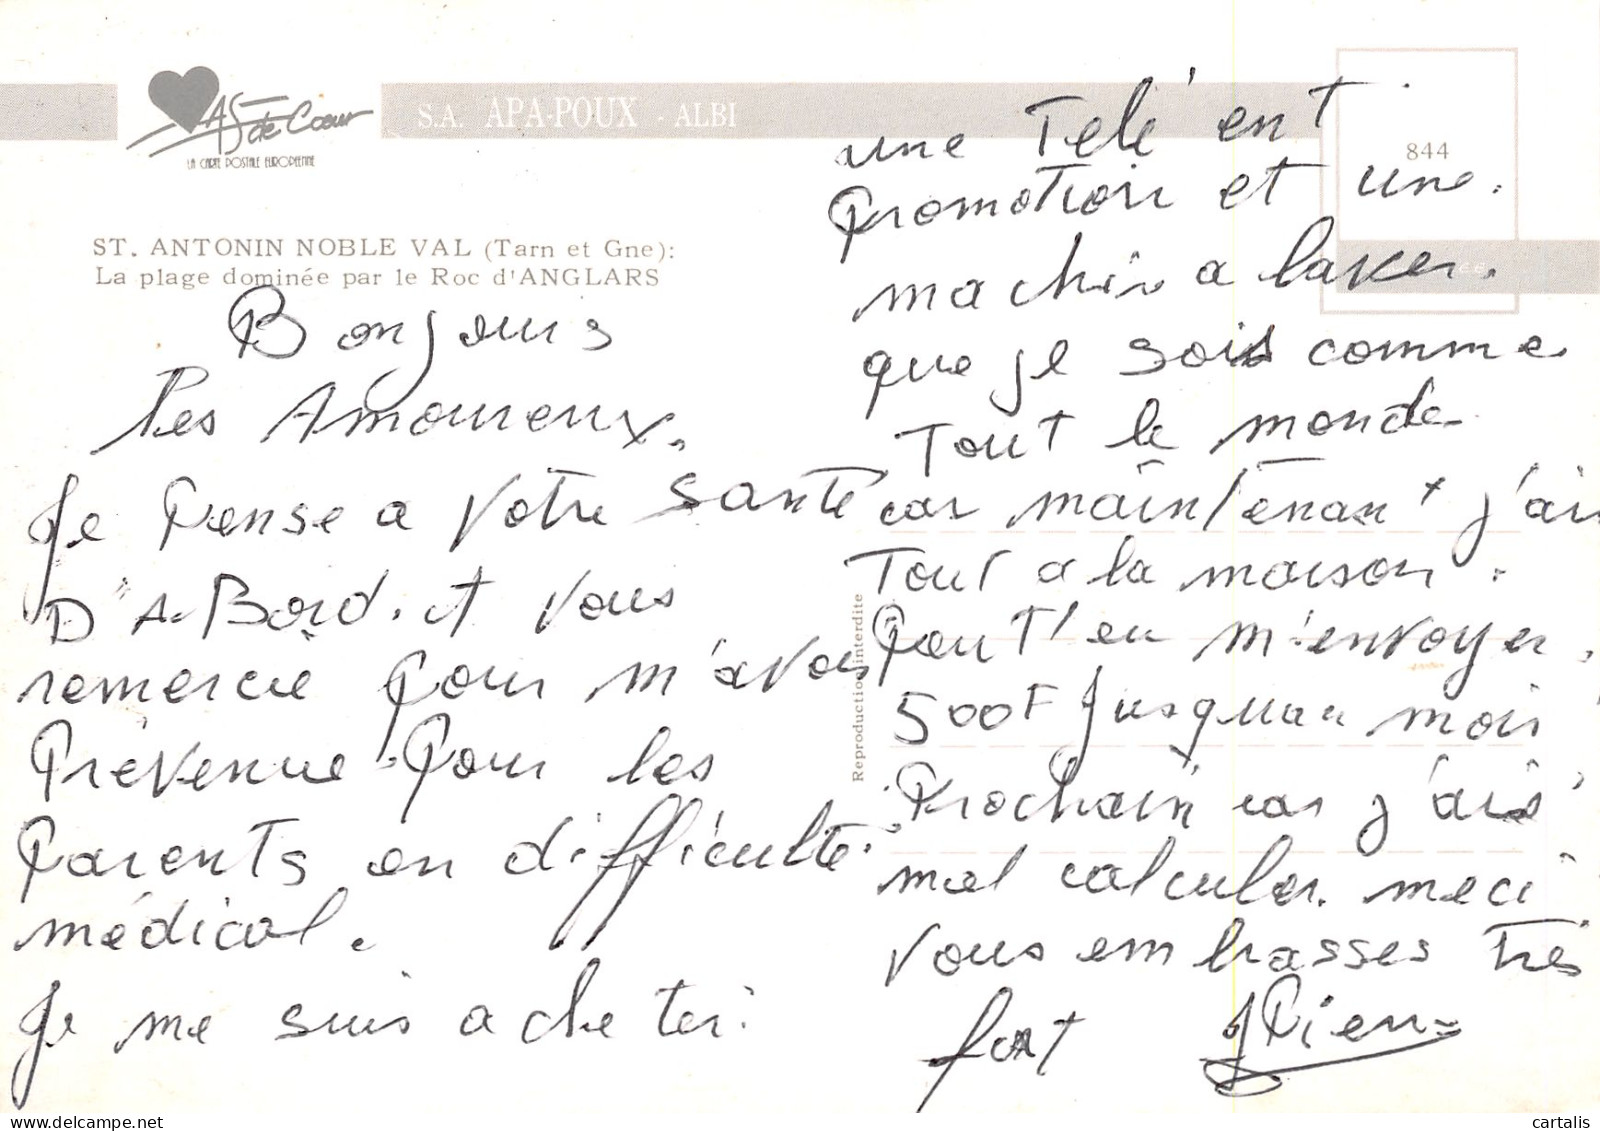 As de Cœur
LA CARTE POSTALE EUROPÉENNE
S.A. APA-POUX - ALBI
844
ST. ANTONIN NOBLE VAL (Tarn et Gne):
La plage dominée par le Roc d'ANGLARS
Reproduction interdite
Bonjours
les Amoureux.
Je Pense a votre santé
D'A-Bord. et vous
remercie pour m'avoir
Prévenue Pour les
Parents en difficulté
médical.
Je me suis acheter:
une Télé ent
Promotion et une.
machin a laver.
que je sois comme
Tout le monde
car maintenant j'ai
Tout a la maison.
Peut'eu m'envoyer.
500F Jusquau mois
Prochain car j'ais
mal calculer. meci
vous embrasses très
fort
cartalis